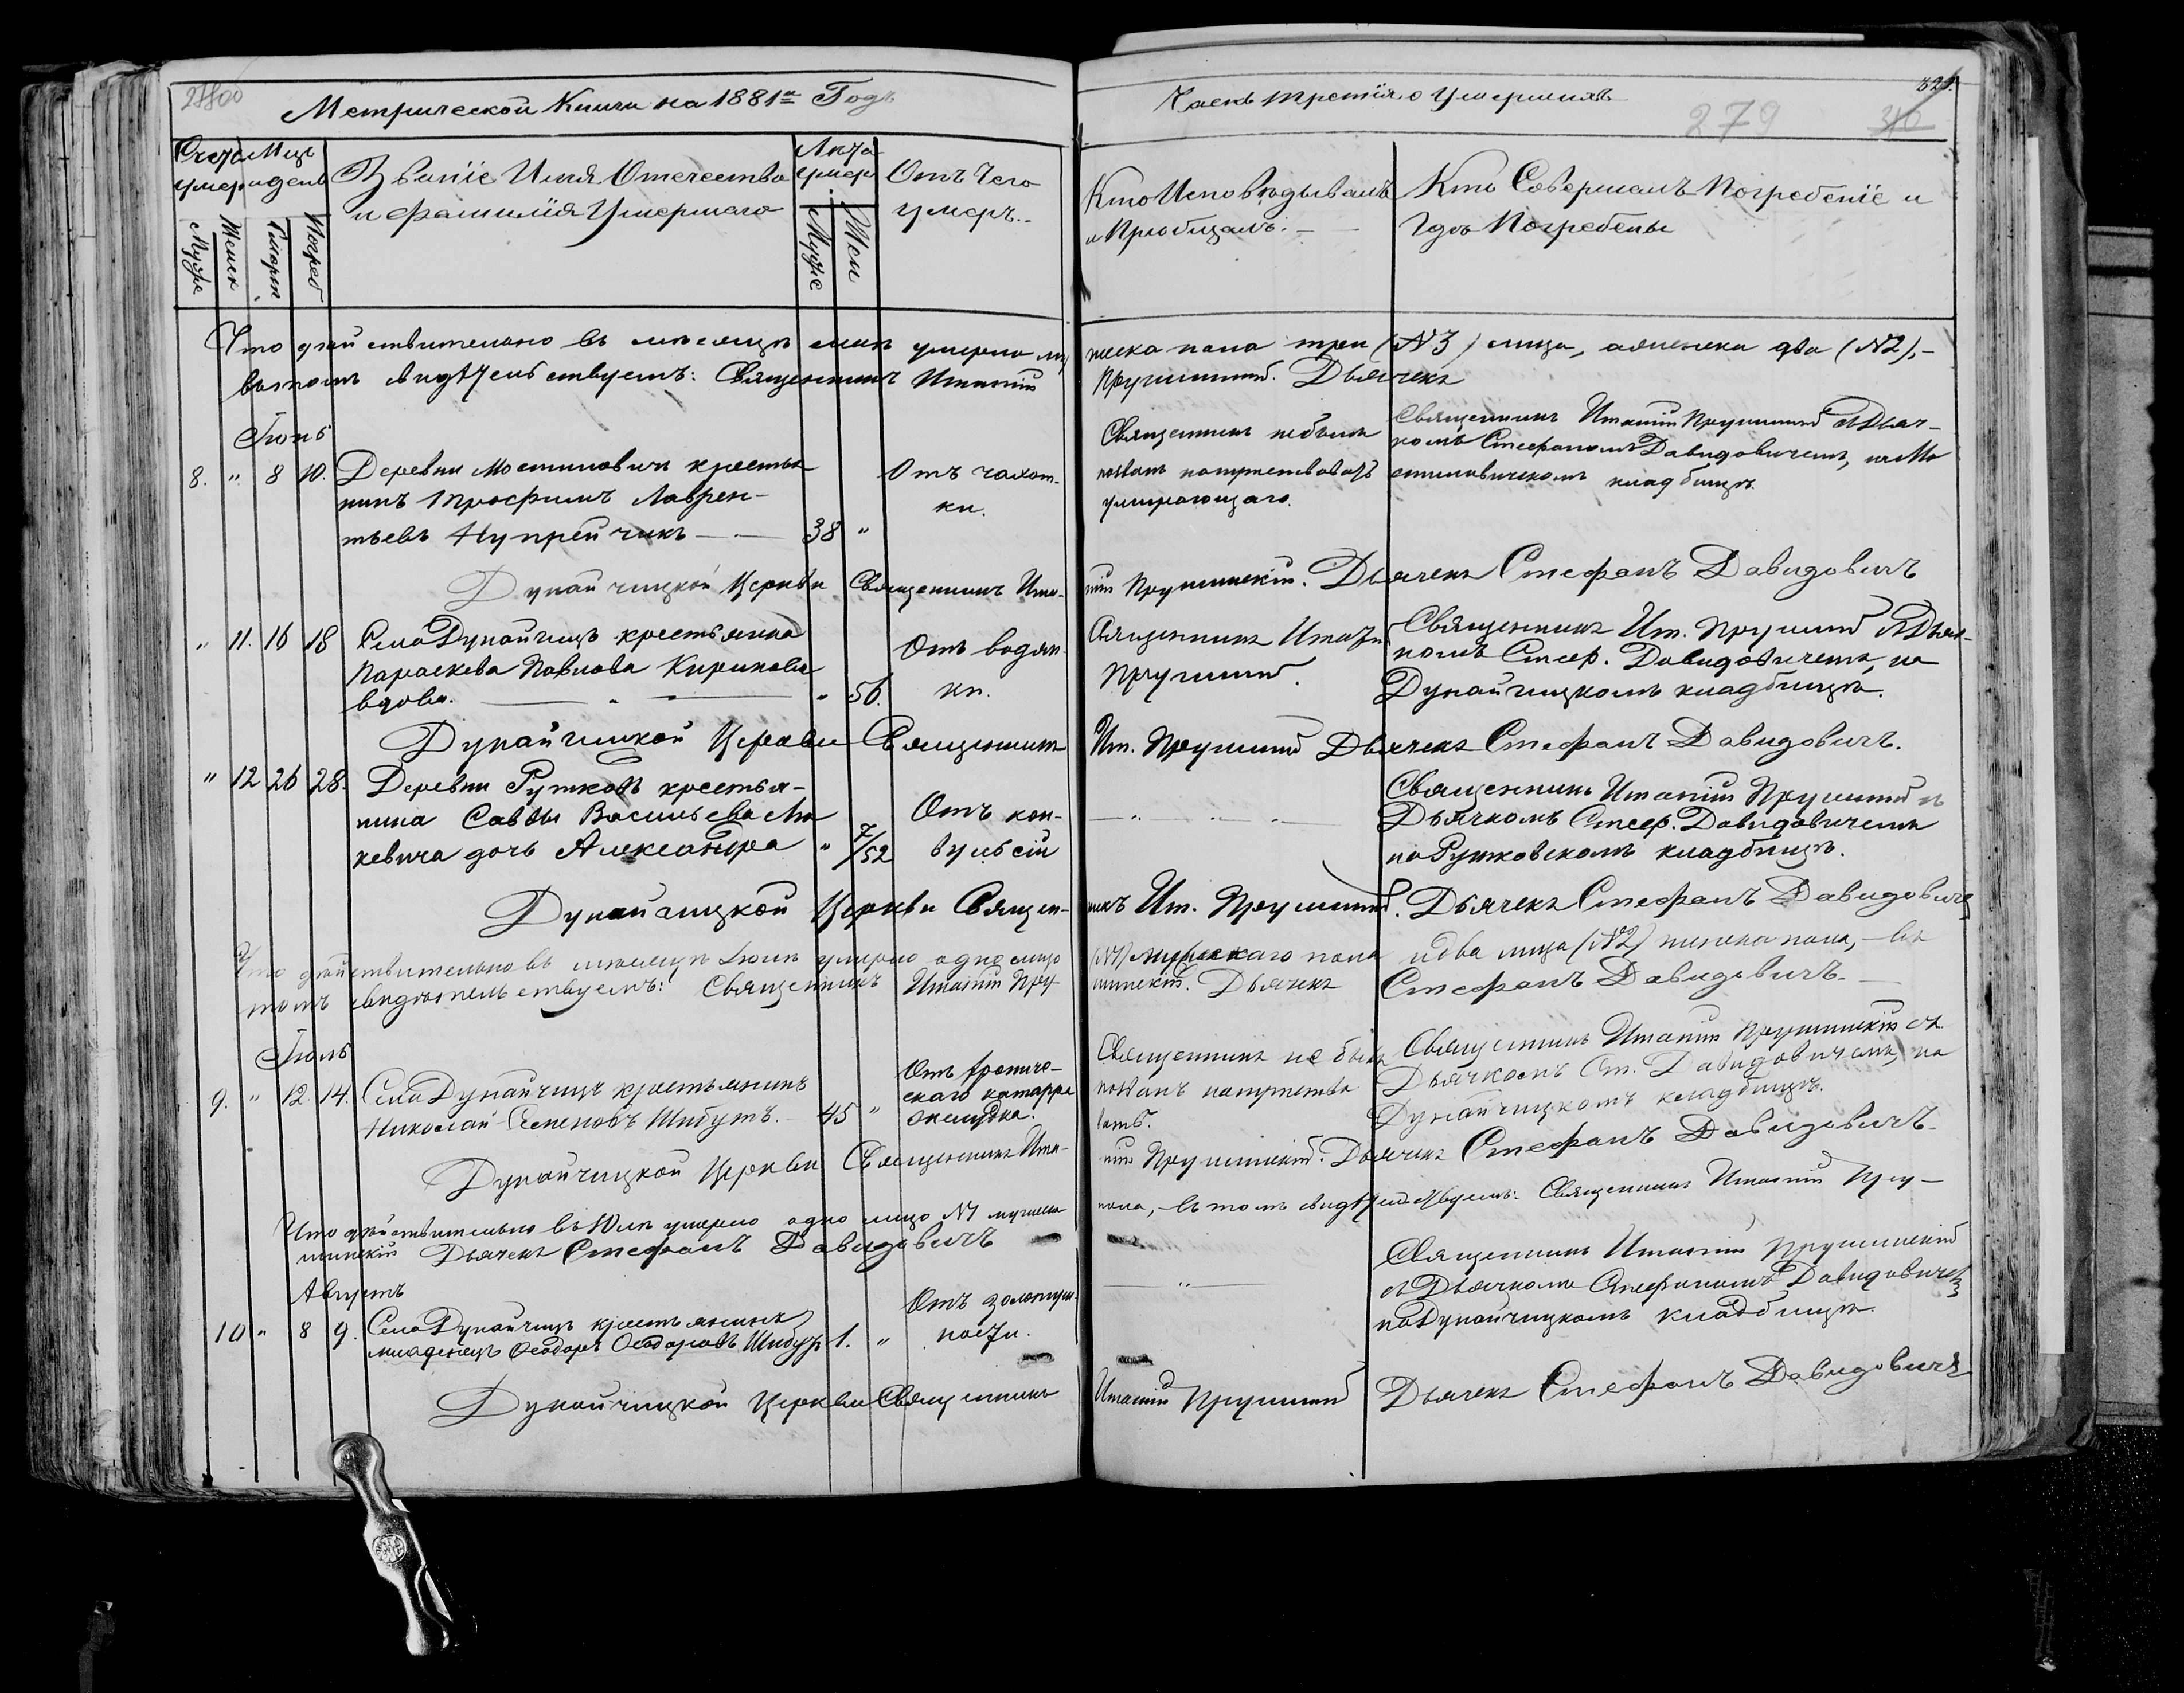 Метрической Книги на 1881й Годъ
Часть третія о Умершихъ
279
Счетъ умер
Мцъ и день
Званіе Имя Отечество
и фамилія Умершаго
Лѣта умер
Отъ Чего
умеръ.
Кто Исповѣдывалъ
и Пріобщалъ.
Кто Совершалъ Погребеніе и
Гдѣ Погребены
Муже
Женск
Смерт.
Погреб
Муже
Жен
Что дѣйствительно въ мѣсяцѣ маѣ умерло му
жеска пола три (№3) лица, а женска два (№2),-
въ томъ свидѣтельствуемъ: Священникъ Игнатій
Дьячекъ
Іюнь
8. " 8 10. Деревни Мостиловичъ крестья
нинъ Трофимъ Лаврен-
тьевъ Купрейчикъ — 38 "
Отъ чахот-
ки.
Священникъ не былъ
позванъ напутствовать
умирающаго.
Священникъ Игнатій съ Дьяч-
комъ Стефаномъ Давидовичемъ, на Мо
стиловичскомъ кладбищѣ.
Дунайчицкой Церкви Священникъ Игна-
тій Дьячекъ Стефанъ Давидовичъ
" 11. 16 18 Села Дунайчицъ крестьянка
Параскева Павлова
вдова. " 56.
Отъ водян-
ки.
Священникъ Игнатій
Священникъ Иг. съ Дьяч-
комъ Стеф. Давидовичемъ, на
Дунайчицкомъ кладбищѣ.
Дунайчицкой Церкви Священникъ
Иг. Дьячекъ Стефанъ Давидовичъ.
" 12 26 28. Деревни Рутковъ крестья-
нина Саввы Васильева
кевича дочь Александра " 7/52
Отъ кон-
вульсій
Священникъ Игнатій съ
Дьячкомъ Стеф. Давидовичемъ
на Рутковскомъ кладбищѣ.
Дунайчицкой Церкви Священ-
никъ Иг. Дьячекъ Стефанъ Давидовичъ
Что дѣйствительно въ мѣсяцѣ Іюнѣ умерло одно лицо
(№1) мужескаго пола и два лица (№2) женска пола,- въ
томъ свидѣтельствуемъ: Священникъ Игнатій
Дьячекъ Стефанъ Давидовичъ.-
Іюль
9. " 12. 14. Села Дунайчицъ крестьянинъ
Николай Семеновъ Шибутъ. 45 "
Отъ хрониче-
скаго катарра
желудка.
Священникъ не былъ
позванъ напутство
вать.
Священникъ Игнатій съ
Дьячкомъ Ст. Давидовичемъ, на
Дунайчицкомъ кладбищѣ.
Дунайчицкой Церкви Священникъ Игна-
тій Дьячекъ Стефанъ Давидовичъ
Что дѣйствительно въ Юлѣ умерло одно лицо №1 мужеска
пола, въ томъ свидѣтельствуемъ: Священникъ Игнатій
Дьячекъ Стефанъ Давидовичъ
Августъ
10 " 8 9. Села Дунайчицъ крестьянинъ
младенецъ Ѳеодоръ Ѳеодоровъ Шибутъ 1. "
Отъ золотуш-
ности.
Священникъ Игнатій
съ Дьячкомъ Стефаномъ Давидовичемъ
на Дунайчицкомъ кладбищѣ.
Дунайчицкой Церкви Священникъ
Игнатій Дьячекъ Стефанъ Давидовичъ